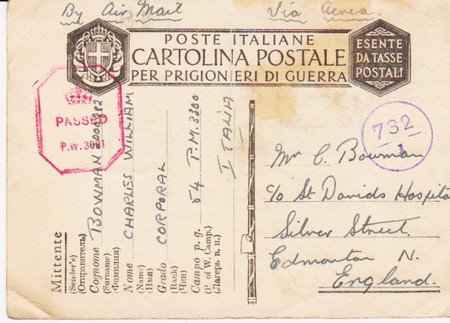 By Air Mail
Via Aerea
POSTE ITALIANE
CARTOLINA POSTALE
PER PRIGIONIERI DI GUERRA
ESENTE
DA TASSE
POSTALI
PASSED
P.W. 3001
732
1
Mittente
(Sender's)
(Отправитель)
Cognome BOWMAN
(Surname)
(Фамилия)
Nome CHARLES WILLIAM
(Name)
(Имя)
Grado CORPORAL
(Rank)
(Чин)
Campo p. g. 54 P.M. 3300
(P. of W. Camp.)
(Лагерь в. п.)
ITALIA
Mr C. Bowman
c/o St Davids Hospital
Silver Street.
Edmonton N.
England.